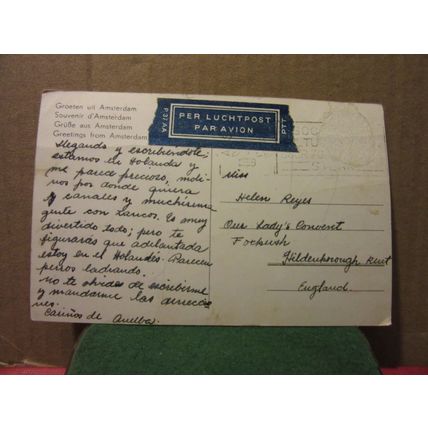 Groeten uit Amsterdam
Souvenir d'Amsterdam
Grüße aus Amsterdam
Greetings from Amsterdam
P 37 AA
PER LUCHTPOST
PAR AVION
PTT
Llegando y escribiendote;
estamos en Holanda y
me parece precioso, moli-
nos por donde quiera
y canales y muchisima
gente con zancos. Es muy
divertido todo; pero te
figuraras que adelantada
estoy en el Holandés. Parecen
perros ladrando.
no te olvides de escribirme
y mandarme las direccio
nes.
Cariños de
Miss
Helen Reyes
Our Lady's Convent
Hildenborough Kent
England.